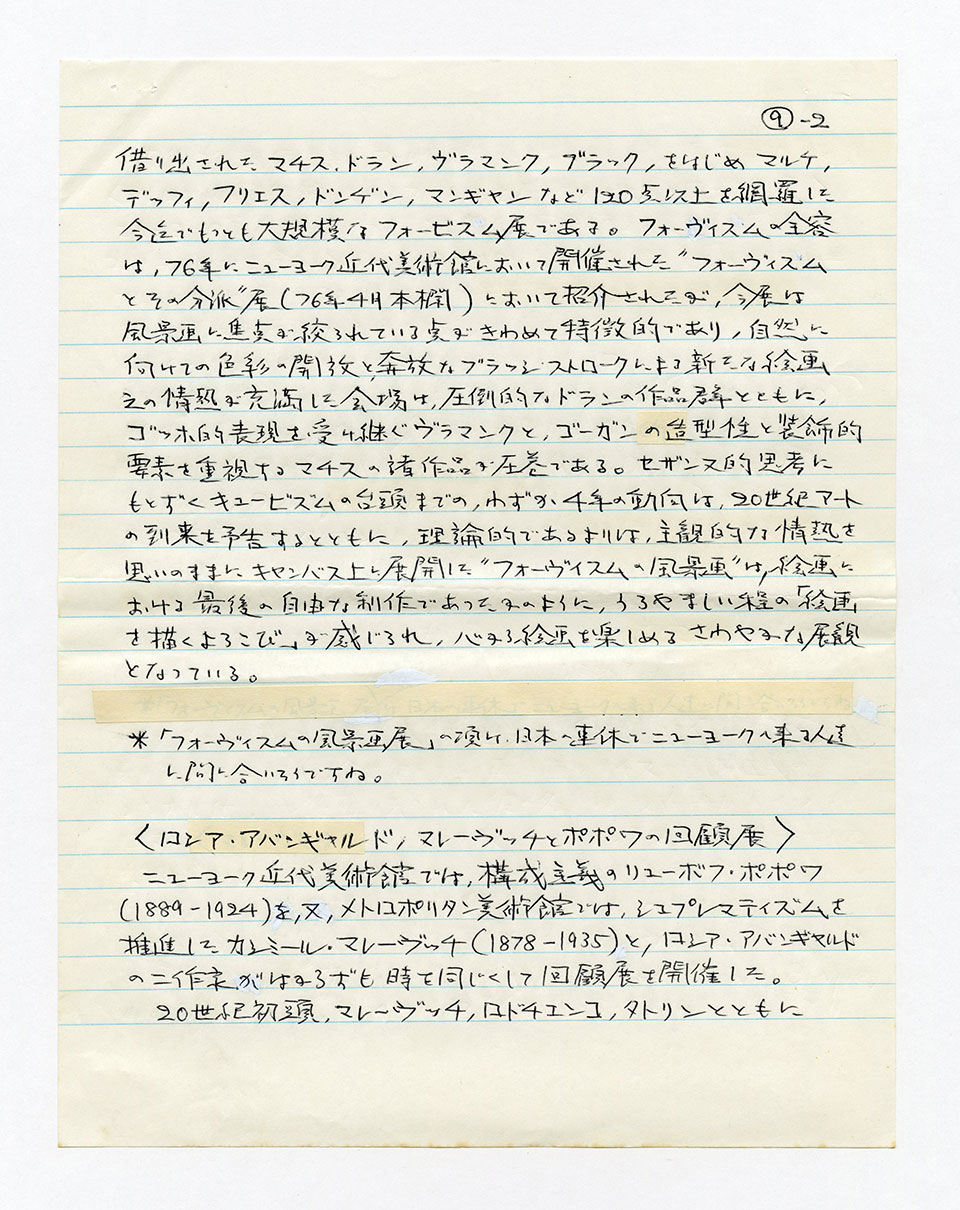 ⑨-2
借り出された マチス、ドラン, ヴラマンク, ブラック, をはじめ マルケ,
デュフィ, フリエス, ドンゲン, マンギャン など 120点以上を網羅した
今迄でもっとも大規模なフォービズム展である。 フォーヴィズムの全容
は, 76年にニューヨーク近代美術館において開催された"フォーヴィズム
とその分派"展(76年4月本欄)において紹介されたが, 今展は
風景画に焦点が絞られている点がきわめて特徴的であり, 自然に
向けての色彩の開放と, 奔放なブラッシ・ストロークによる新たな絵画
えの情熱が充満した会場は, 圧倒的なドランの作品群とともに,
ゴッホ的表現を受け継ぐヴラマンクと, ゴーガンの造型性と装飾的
要素を重視するマチスの諸作品が圧巻である。 セザンヌ的思考に
もとずくキュービズムの台頭までの, わずか4年の動向は, 20世紀アート
の到来を予告するとともに, 理論的であるよりは, 主観的な情熱を
思いのままにキャンバス上に展開した"フォーヴィスムの風景画"は, 絵画に
おける最後の自由な制作であったかのように, うらやましい程の「絵画
を描くよろこび」が感じられ, 心から絵画を楽しめるさわやかな展観
となっている。
*「フォーヴィスムの風景画展」の項は, 日本の連休でニューヨークへ来る人達
に間に合いそうですね。
〈ロシア・アバンギャルド, マレーヴッチとポポワの回顧展〉
ニューヨーク近代美術館では, 構成主義のリューボフ・ポポワ
(1889-1924)を, 又, メトロポリタン美術館では, シュプレマティズムを
推進したカシミール・マレーヴッチ(1878-1935)と, ロシア・アバンギャルド
の二作家がはからずも時を同じくして回顧展を開催した。
20世紀初頭, マレーヴッチ, ロドチェンコ, タトリンとともに